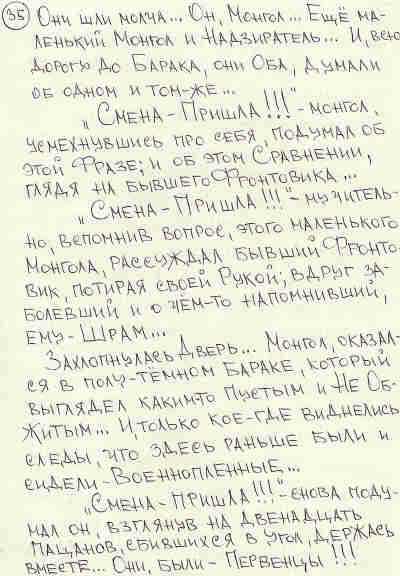 35 Они шли молча... Он, Монгол... Ещё ма-
ленький Монгол и Надзиратель... И, всю
дорогу до Барака, они Оба, думали
об одном и том-же...
„Смена-Пришла!!!"-монгол,
усмехнувшись про себя, подумал об
этой Фразе; и об этом Сравнении,
глядя на бывшего Фронтовика...
„Смена-Пришла!!!"-мучитель-
но, вспомнив вопрос, этого маленького
Монгола, рассуждал бывший Фронто-
вик, потирая своей Рукой; вдруг за-
болевший и о чём-то напомнивший,
ему-Шрам...
Захлопнулась Дверь... Монгол, оказал-
ся в полу-тёмном Бараке, который
выглядел каким-то Пустым и Не Об-
житым... И, только кое-где виднелись
следы, что здесь раньше были и
сидели-Военнопленные...
„Смена-Пришла!!!"-снова поду-
мал он, взглянув на двенадцать
пацанов, сбившихся в угол, держась
вместе... Они, были-Первенцы!!!